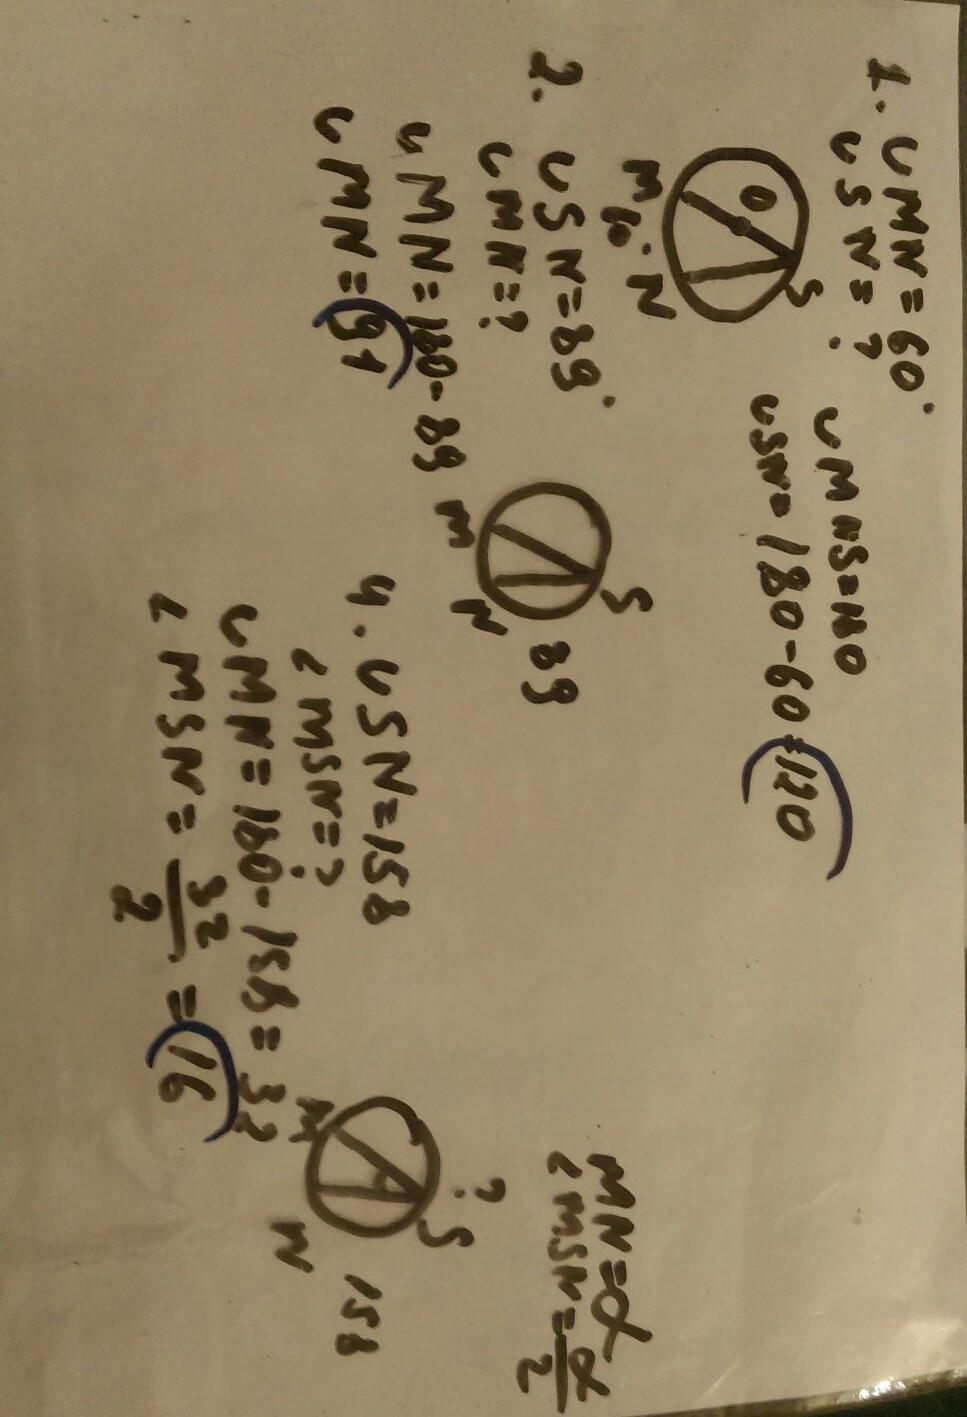 1. ∪MN=60°
∪SN=?
∪MNS=180
∪SN=180-60=120
O
S
M
60°
N
2. ∪SN=89°
∪MN=?
∪MN=180-89
∪MN=91
S
M
N
89
4. ∪SN=158
∠MSN=?
∪MN=180-158=32
∠MSN=32/2=16
MN=α
∠MSN=α/2
?
S
M
N
158